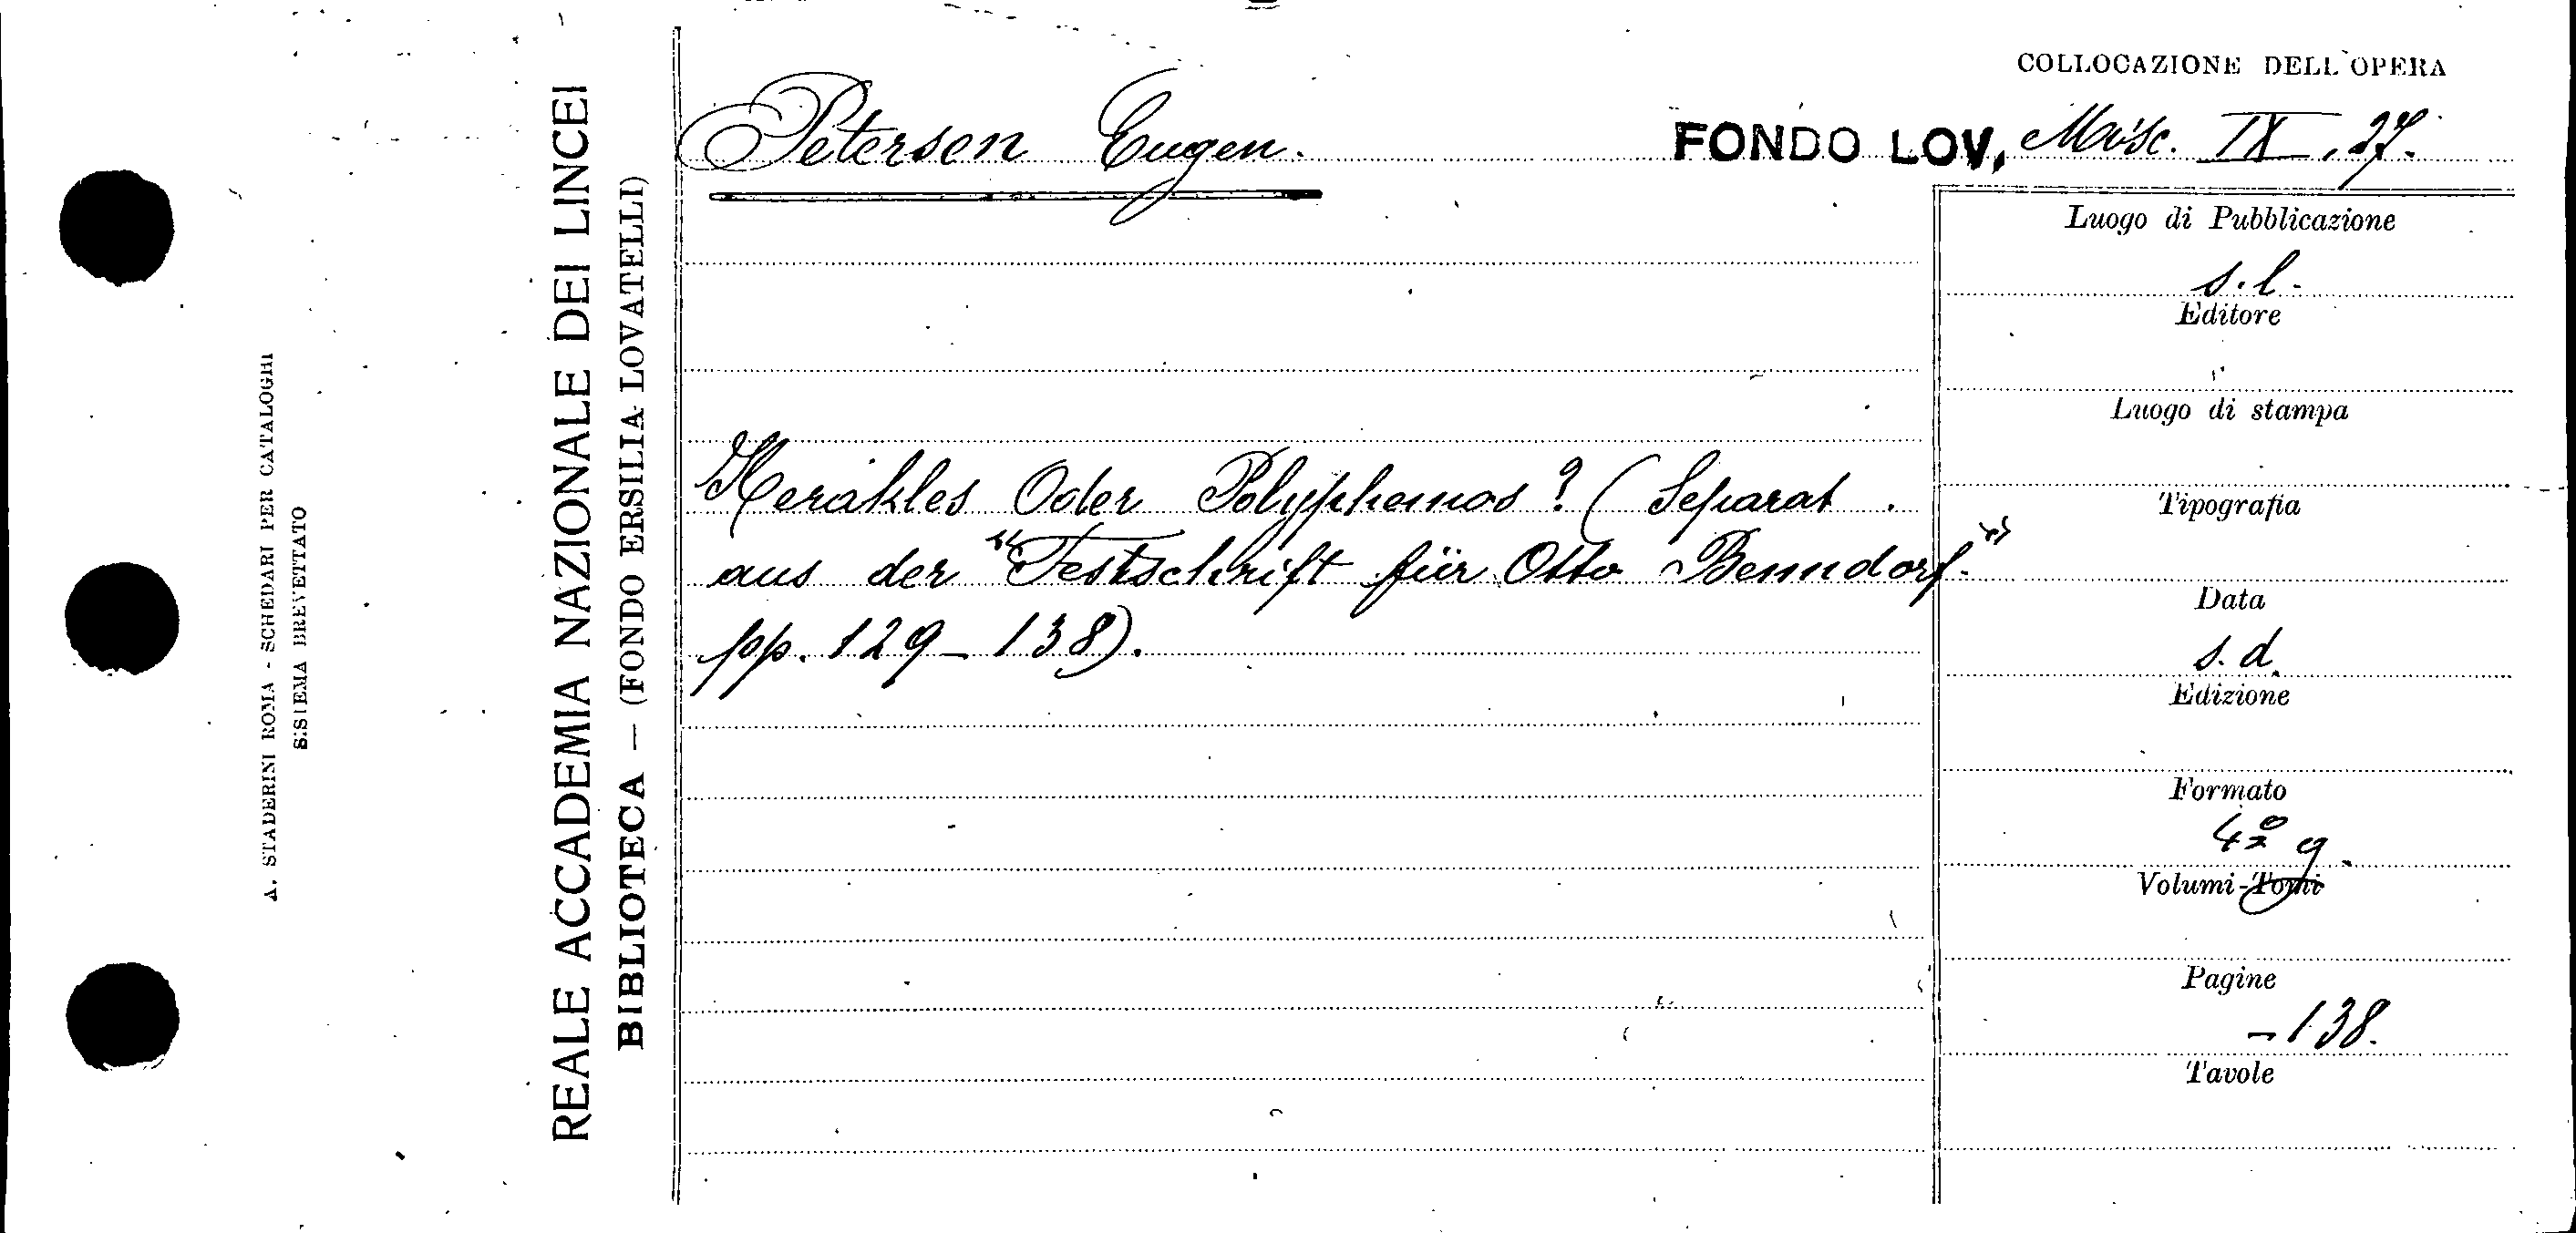 COLLOCAZIONE DELL'OPERA
Petersen Eugen.
FONDO LOV, Misc. IX, 27.
Herakles Oder Polyphemos? (Separat.
aus der "Festschrift für Otto Benndorf."
pp. 129-138).
Luogo di Pubblicazione
s.l.
Editore
Luogo di stampa
Tipografia
Data
s.d.
Edizione
Formato
4º g.
Volumi-Tomi
Pagine
-138.
Tavole
REALE ACCADEMIA NAZIONALE DEI LINCEI
BIBLIOTECA — (FONDO ERSILIA LOVATELLI)
A. STADERINI ROMA - SCHEDARI PER CATALOGHI
SISTEMA BREVETTATO